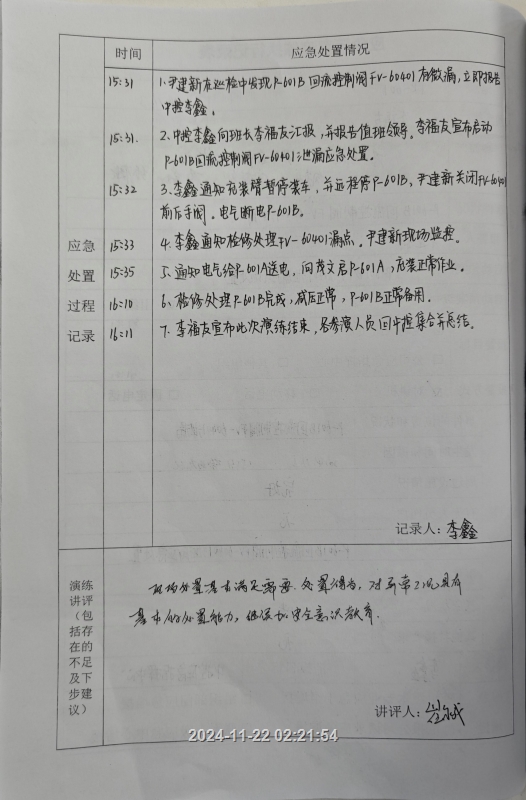 时间 应急处置情况
15:31 1. 尹建新在巡检中发现P-601B回流控制阀FV-60401有微漏,立即报告
中控李鑫。
15:31. 2. 中控李鑫向班长李福友汇报,并报告值班领导。李福友宣布启动
P-601B回流控制阀FV-60401泄漏应急处置。
15:32 3. 李鑫通知充装臂暂停装车,并远程停P-601B,尹建新关闭FV-60401
前后手阀。电气断电P-601B。
应急 15:33 4. 李鑫通知检修处理FV-60401漏点。尹建新现场监控。
处置 15:35 5. 通知电气给P-601A送电,闫茂文启P-601A,充装正常作业。
过程 16:10 6. 检修处理P-601B完成,试压正常,P-601B正常备用。
记录 16:11 7. 李福友宣布此次演练结束,各参演人员回中控集合并总结。
记录人:李鑫
演练
讲评
(包
括存
在的
不足
及下
步建
议)
现场处置基本满足需要、处置得当,对异常工况具有
基本的处置能力,继续加强安全意识教育.
讲评人:
2024-11-22 02:21:54